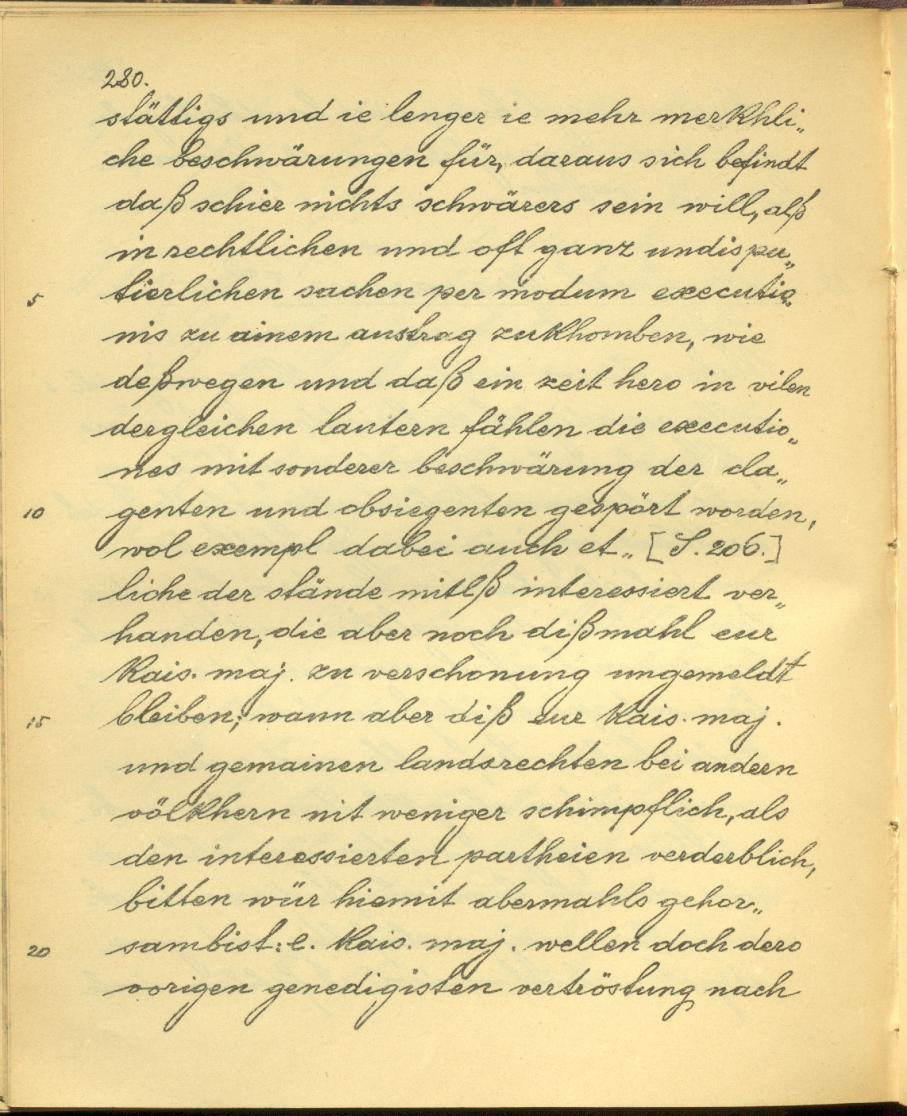 280.
stättigs und ie lenger ie mehr merkhli„
che beschwärungen für, daraus sich befindt
daß schier nichts schwärers sein will, alß
in rechtlichen und oft ganz undispu„
5 tierlichen sachen per modum executio„
nis zu ainem austrag zukhomben, wie
deßwegen und daß ein zeit hero in vilen
dergleichen lautern fählen die executio„
nes mit sonderer beschwärung der cla„
10 genten und obsiegenten gespört worden,
wol exempl dabei auch et„ [S. 206.]
liche der stände mitlß interessiert ver„
handen, die aber noch dißmahl eur
Kais. maj. zu verschonung ungemeldt
15 bleiben; wann aber diß eur Kais. maj.
und gemainen landsrechten bei andern
völkhern nit weniger schimpflich, als
den interessierten partheien verderblich,
bitten wür hiemit abermahls gehor„
20 sambist: e. Kais. maj. wellen doch dero
vorigen genedigisten vertröstung nach